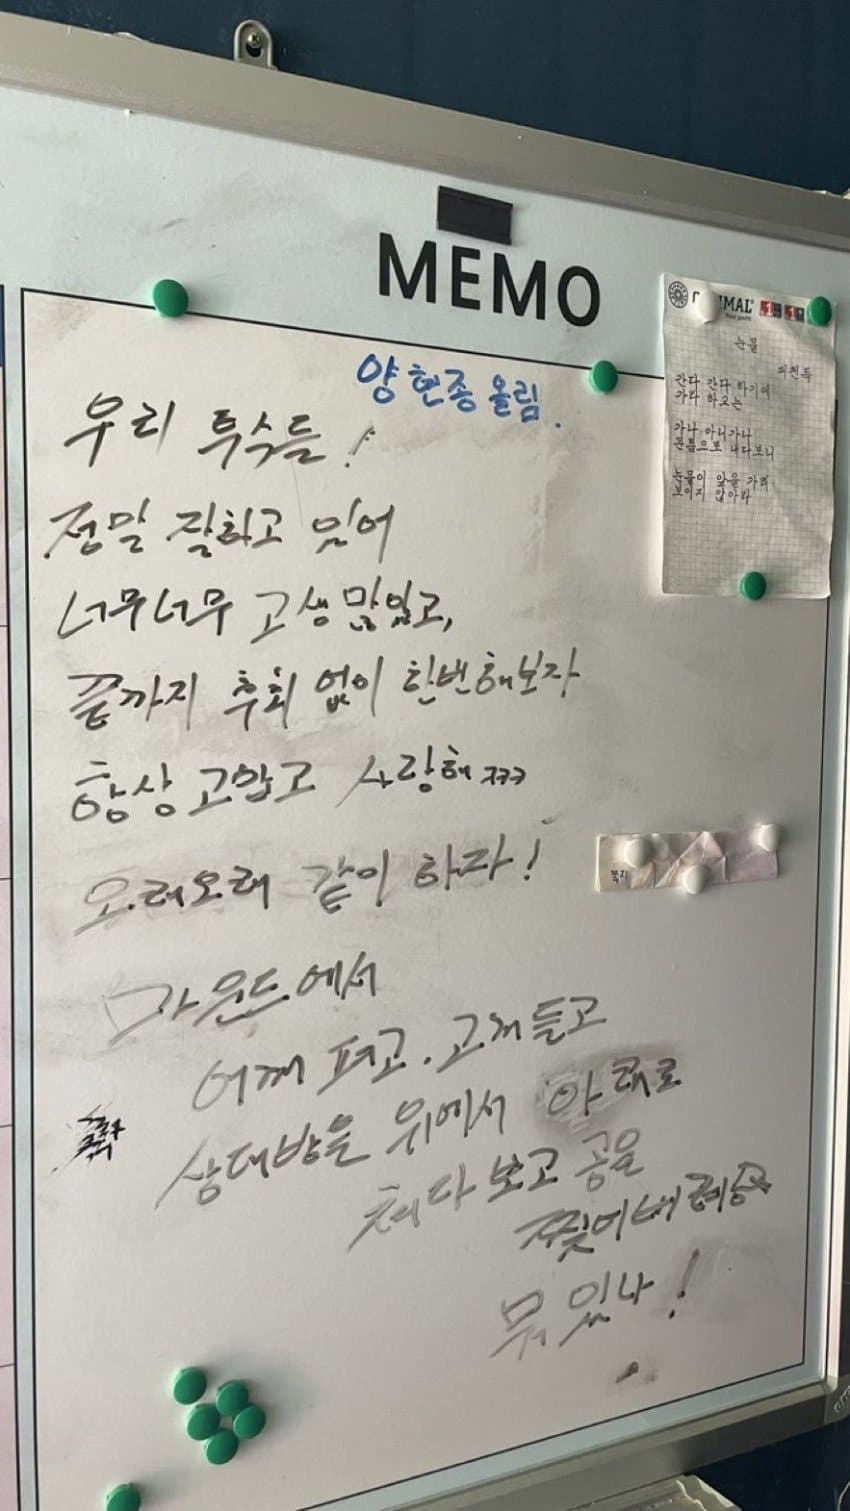 MEMO
양현종 올림.
우리 투수들!
정말 잘하고 있어
너무너무 고생많았고,
끝까지 후회 없이 한번해보자
항상 고맙고 사랑해 ㅋㅋㅋ
오래오래 같이 하자!
마운드에서
어깨 펴고. 고개들고
상대방을 위에서 아래로
쳐다 보고 공을
찢어버려
뭐 있나!
눈물
피천득
간다 간다 하기에
가라 하고는
가나 아니가나
문틈으로 내다보니
눈물이 앞을 가려
보이지 않아라
쪽지